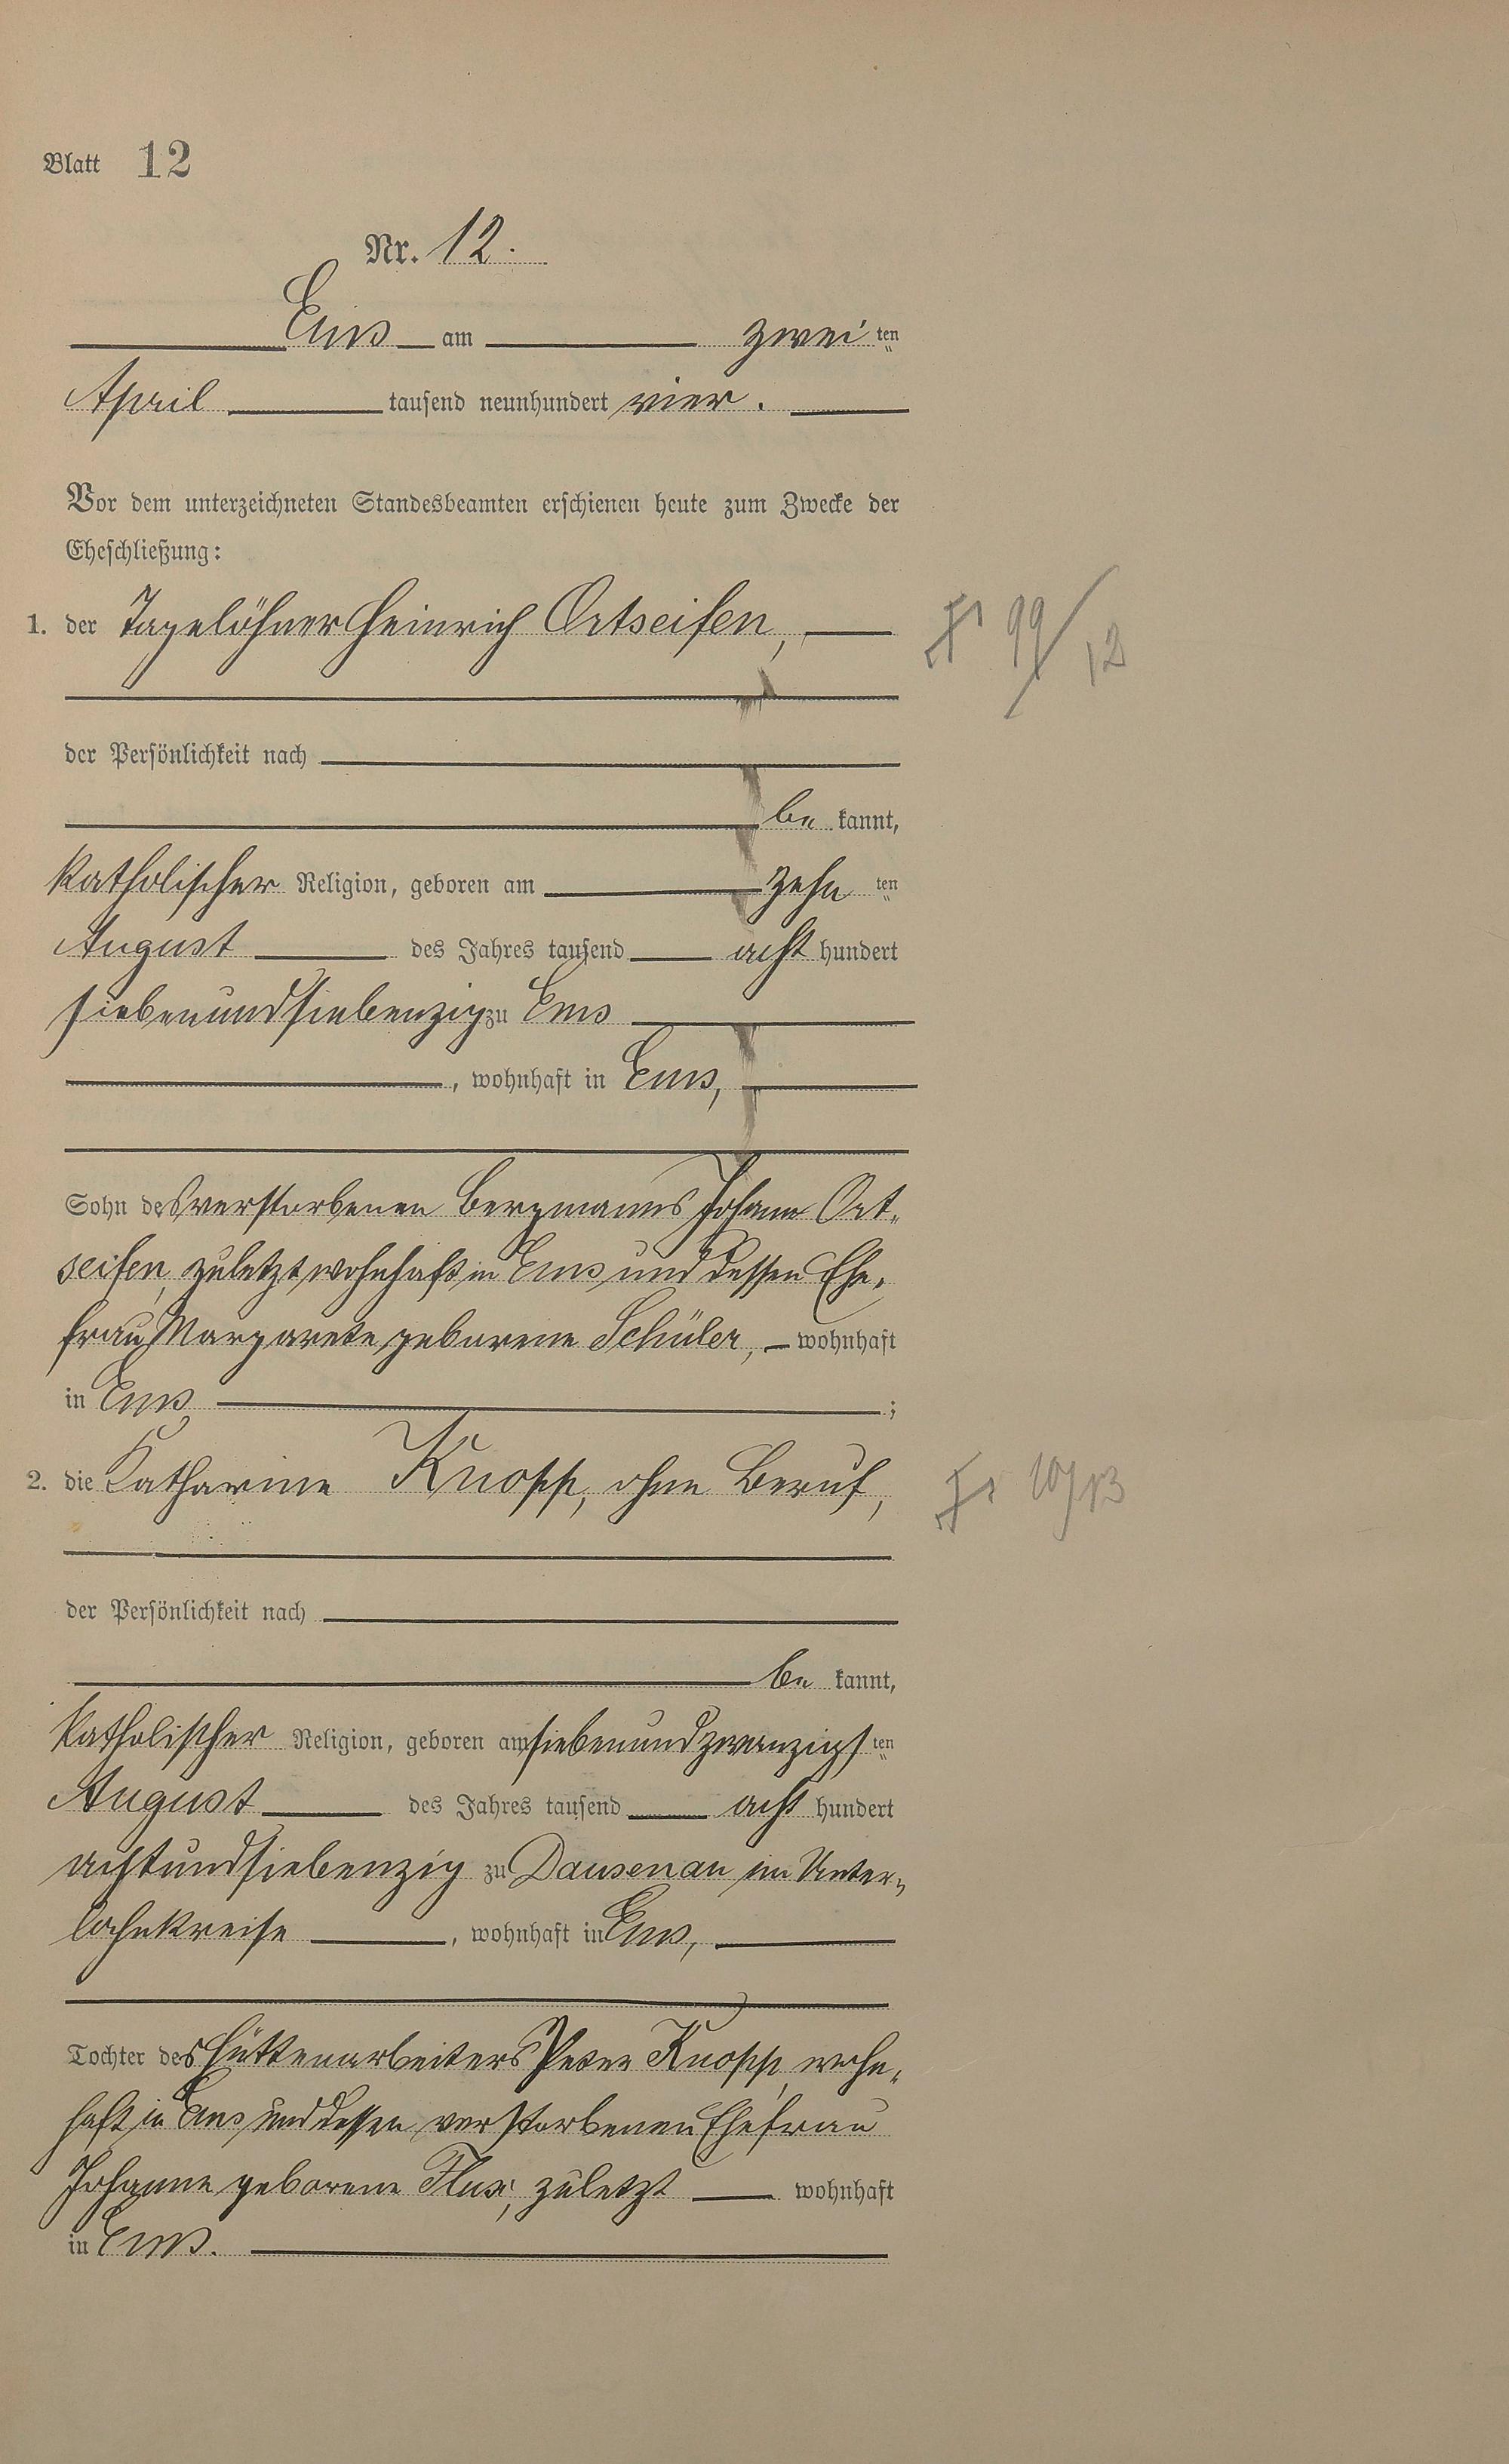 Blatt 12
Nr. 12.
Ems am zweiten
April tausend neunhundert vier.
Vor dem unterzeichneten Standesbeamten erschienen heute zum Zwecke der
Eheschließung:
1. der Tagelöhner Heinrich Ortseifen,
der Persönlichkeit nach
be kannt,
katholischer Religion, geboren am zehn ten
August des Jahres tausend acht hundert
siebenundsiebenzig zu Ems
, wohnhaft in Ems,
Sohn des verstorbenen Bergmanns Johann Ort-
seifen, zuletzt wohnhaft in Ems und dessen Ehe-
frau Margarete geborene Schüler, wohnhaft
in Ems ;
2. die Katharine Knopp, ohne Beruf,
der Persönlichkeit nach
be kannt,
katholischer Religion, geboren am siebenundzwanzigsten
August des Jahres tausend acht hundert
achtundsiebenzig zu Dausenau im Unter-
lahnkreise , wohnhaft in Ems,
Tochter des Hüttenarbeiters Peter Knopp, wohn-
haft in Ems und dessen verstorbenen Ehefrau
Johanne geborene Flux, zuletzt wohnhaft
in Ems.